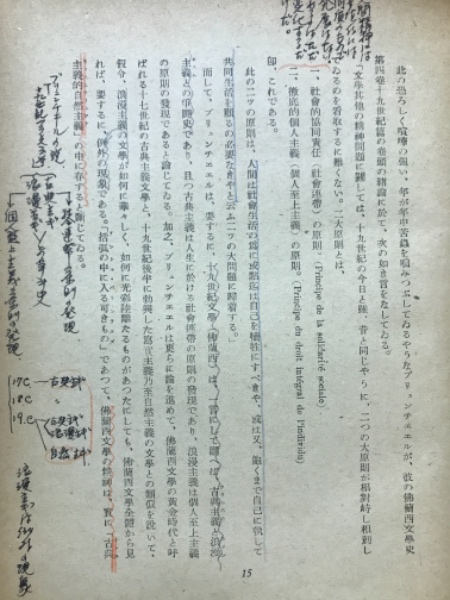 此の恐ろしく喧嘩の强い、年が年中苦虫を噛みつぶしてゐるやうなブリュンチエールが、彼の佛蘭西文學史
第四卷十九世紀篇の卷頭の緖論に於て、次の如き言をなしてゐる。
「文學其他の精神問題に關しては、十九世紀の今日と雖、昔と同じやうに、二つの大原則が相對峙し相剋し
てゐるのを看取するに難くない。二大原則とは、
一、社會的協同責任（社會連帶）の原則。(Principe de la solidarité sociale)
二、徹底的個人主義（個人至上主義）の原則。(Principe du droit intégral de l'individu)
卽、これである。
此の二つの原則は、人間は社會生活の爲に或點迄は自己を犧牲にすべきや、或は又、飽くまで自己に執して
共同生活を顧みるの必要なきやと云ふ二つの大問題に歸着する。
而して、ブリュンチエールは、要するに、十九世紀文學（佛蘭西）は、一言にして謂へば、古典主義と浪漫
主義との爭鬪史であり、且つ古典主義は人生に於ける社會連帶の原則の發現であり、浪漫主義は個人至上主義
の原則の發現であると論じてゐる。加之、ブリュンチエールは更らに論を進めて、佛蘭西文學の黄金時代と呼
ばれる十七世紀の古典主義文學と、十九世紀後半に勃興した寫實主義乃至自然主義の文學との類似を說いて、
假令、浪漫主義の文學が如何に華々しく、如何に光彩陸離たるものがあつたにしても、佛蘭西文學全體から見
れば、要するに、例外の現象である。「括弧の中に入る可きもの」であつて、佛蘭西文學の精神は、實に「古典
主義的自然主義」の中に存すると斷じてゐる。
ブリュンチエールの說
古典主義
浪漫主義
個人至上主義の原則の發現
17C
18C
19.C
15